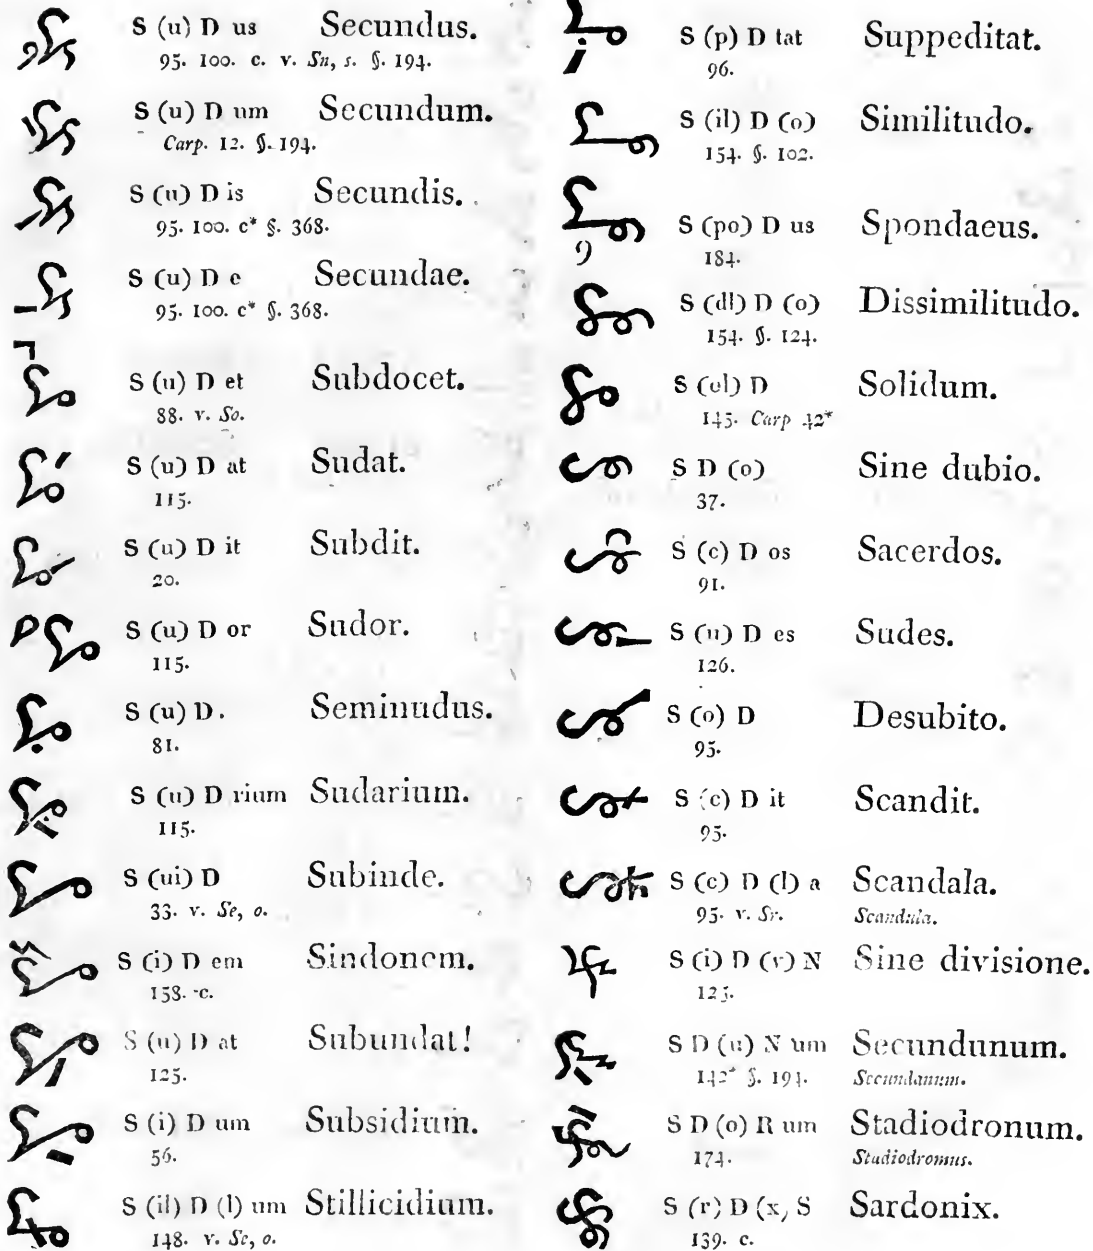 S (u) D us Secundus.
95. 100. c. v. Sn, s. §. 194.
S (u) D um Secundum.
Carp. 12. §. 194.
S (u) D is Secundis.
95. 100. c* §. 368.
S (u) D e Secundae.
95. 100. c* §. 368.
S (u) D et Subdocet.
88. v. So.
S (u) D at Sudat.
115.
S (u) D it Subdit.
20.
S (u) D or Sudor.
115.
S (u) D . Seminudus.
81.
S (u) D rium Sudarium.
115.
S (ui) D Subinde.
33. v. Se, o.
S (i) D em Sindonem.
158. c.
S (u) D at Subundat!
125.
S (i) D um Subsidium.
56.
S (il) D (l) um Stillicidium.
148. v. Se, o.
S (p) D tat Suppeditat.
96.
S (il) D (o) Similitudo.
154. §. 102.
S (po) D us Spondaeus.
184.
S (dl) D (o) Dissimilitudo.
154. §. 124.
S (ol) D Solidum.
145. Carp 42*
S D (o) Sine dubio.
37.
S (c) D os Sacerdos.
91.
S (u) D es Sudes.
126.
S (o) D Desubito.
95.
S (c) D it Scandit.
95.
S (c) D (l) a Scandala.
95. v. Sr. Scandula.
S (i) D (v) N Sine divisione.
125.
S D (u) N um Secundunum.
142* §. 194. Secundanum.
S D (o) R um Stadiodronum.
174. Stadiodromus.
S (r) D (x) S Sardonix.
139. c.